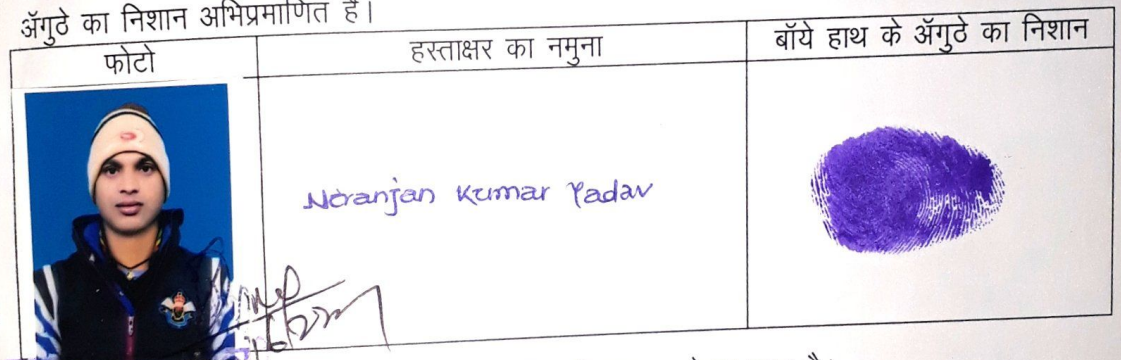 अँगुठे का निशान अभिप्रमाणित है।
फोटो
हस्ताक्षर का नमुना
बाँये हाथ के अँगुठे का निशान
Noranjan Kumar Yadav